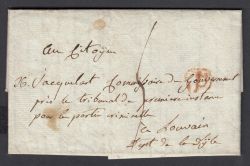 Au Citoyen
Jacquelart Commissaire du Gouvernement
près le tribunal de première instance
pour la partie criminelle
à Louvain
Dépt de la Dyle